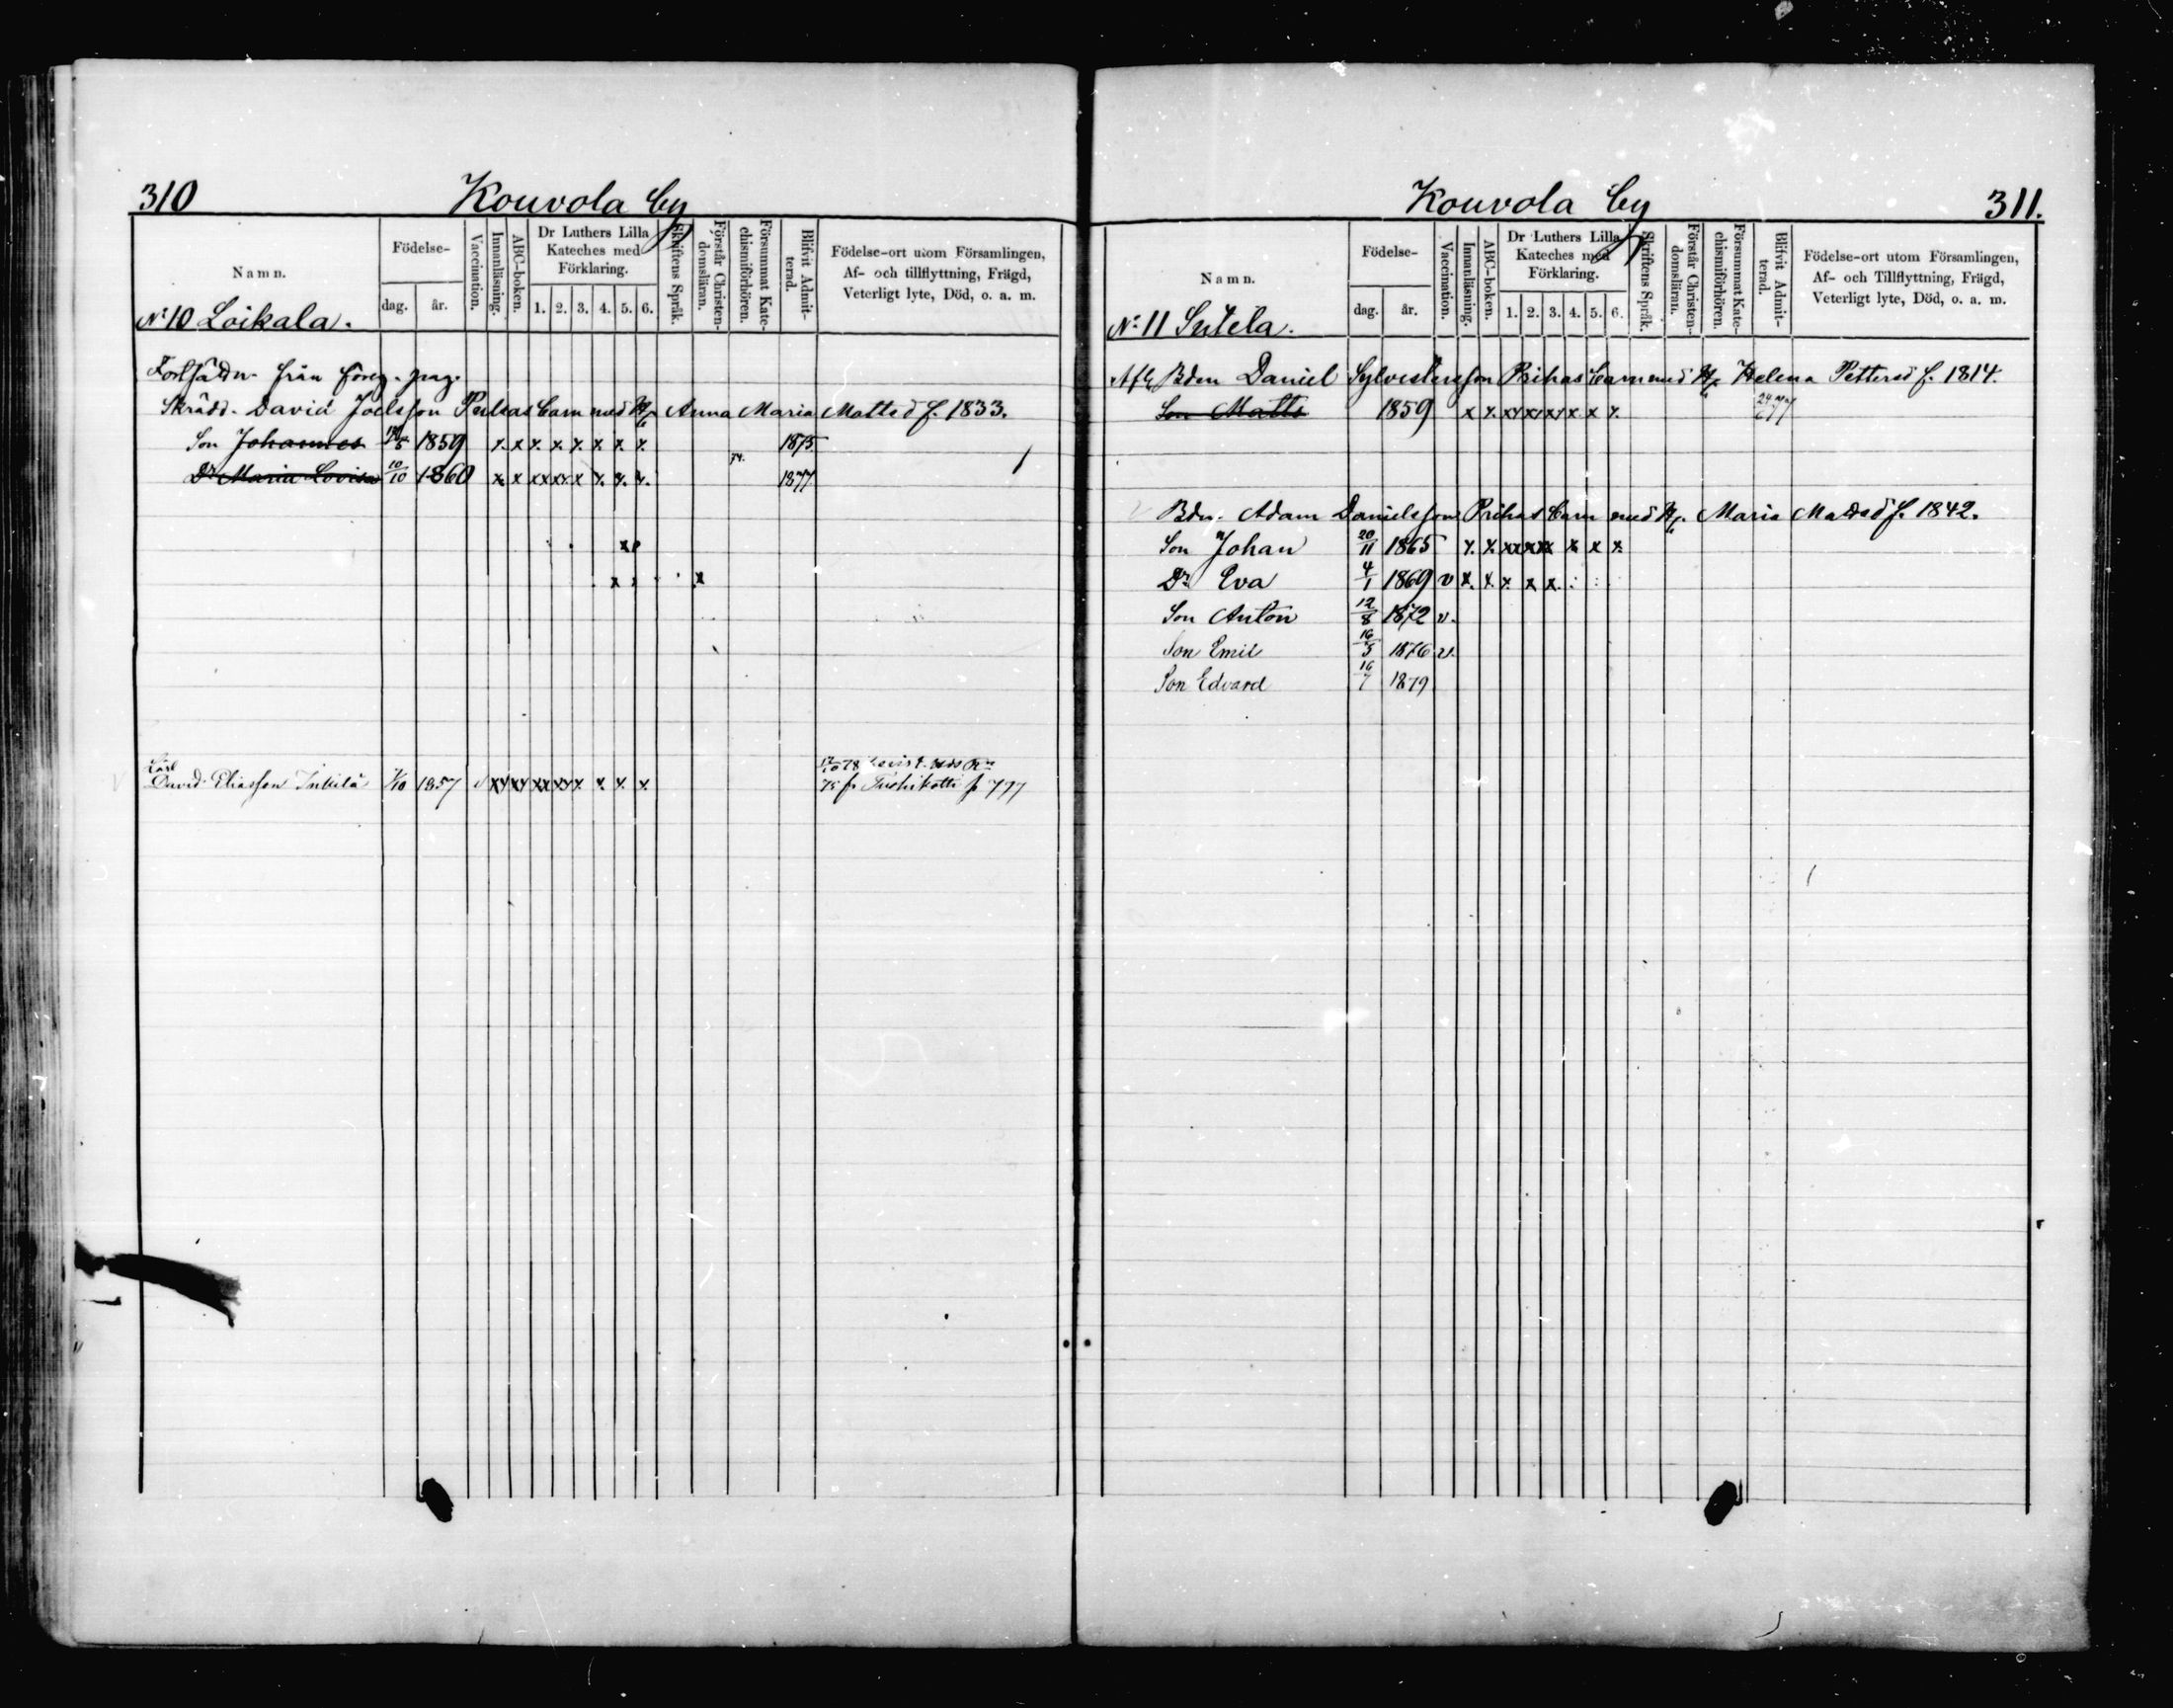 310
Kouvola by
Namn.
Födelse-
dag.
år.
Vaccination.
Innanläsning.
ABC-boken.
Dr Luthers Lilla
Kateches med
Förklaring.
1. 2. 3. 4. 5. 6.
Skriftens Språk.
Förstår Christen-
domsläran.
Försummat Kate-
chismiförhören.
Blifvit Admit-
terad.
Födelse-ort utom Församlingen,
Af- och tillflyttning, Frägd,
Veterligt lyte, Död, o. a. m.
No 10 Loikala.
från föreg. pag.
Skrädd. David Joelsson barn med Hu Anna Maria Mattsd f. 1833.
Son Johannes 1859 x x x x x x x x 1875
74.
Dr Maria Lovisa 10/10 1860 x x xx xx x x x x 1877
x
x x
David Eliasson Inkilä 1/10 1857 xx xx xx xx x x x x
75 fr p 777
Kouvola by
311.
Namn.
Födelse-
dag.
år.
Vaccination.
Innanläsning.
ABC-boken.
Dr Luthers Lilla
Kateches med
Förklaring.
1. 2. 3. 4. 5. 6.
Skriftens Språk.
Förstår Christen-
domsläran.
Försummat Kate-
chismiförhören.
Blifvit Admit-
terad.
Födelse-ort utom Församlingen,
Af- och Tillflyttning, Frägd,
Veterligt lyte, Död, o. a. m.
No 11 Sutela.
Bdn Daniel Sylvestersson Prihas barn med Hu Helena Pettersd f. 1814.
Son Matts 1859 x x xx xx xx x x x
Bdn. Adam Danielsson Prihas barn med Hu. Maria Mattsd f. 1842.
Son Johan 20/11 1865 x x xx xx xx x x x
Dr Eva 4/1 1869 v x x x x x
Son Anton 12/8 1872 v.
Son Emil 16/3 1876 v.
Son Edvard 16/7 1879